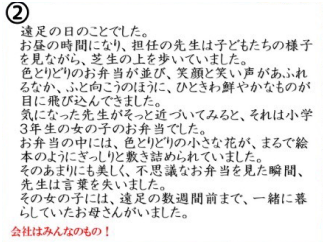 ②
遠足の日のことでした。
お昼の時間になり、担任の先生は子どもたちの様子
を見ながら、芝生の上を歩いていました。
色とりどりのお弁当が並び、笑顔と笑い声があふれ
るなか、ふと向こうのほうに、ひときわ鮮やかなものが
目に飛び込んできました。
気になった先生がそっと近づいてみると、それは小学
3年生の女の子のお弁当でした。
お弁当の中には、色とりどりの小さな花が、まるで絵
本のようにぎっしりと敷き詰められていました。
そのあまりにも美しく、不思議なお弁当を見た瞬間、
先生は言葉を失いました。
その女の子には、遠足の数週間前まで、一緒に暮
らしていたお母さんがいました。
会社はみんなのもの!